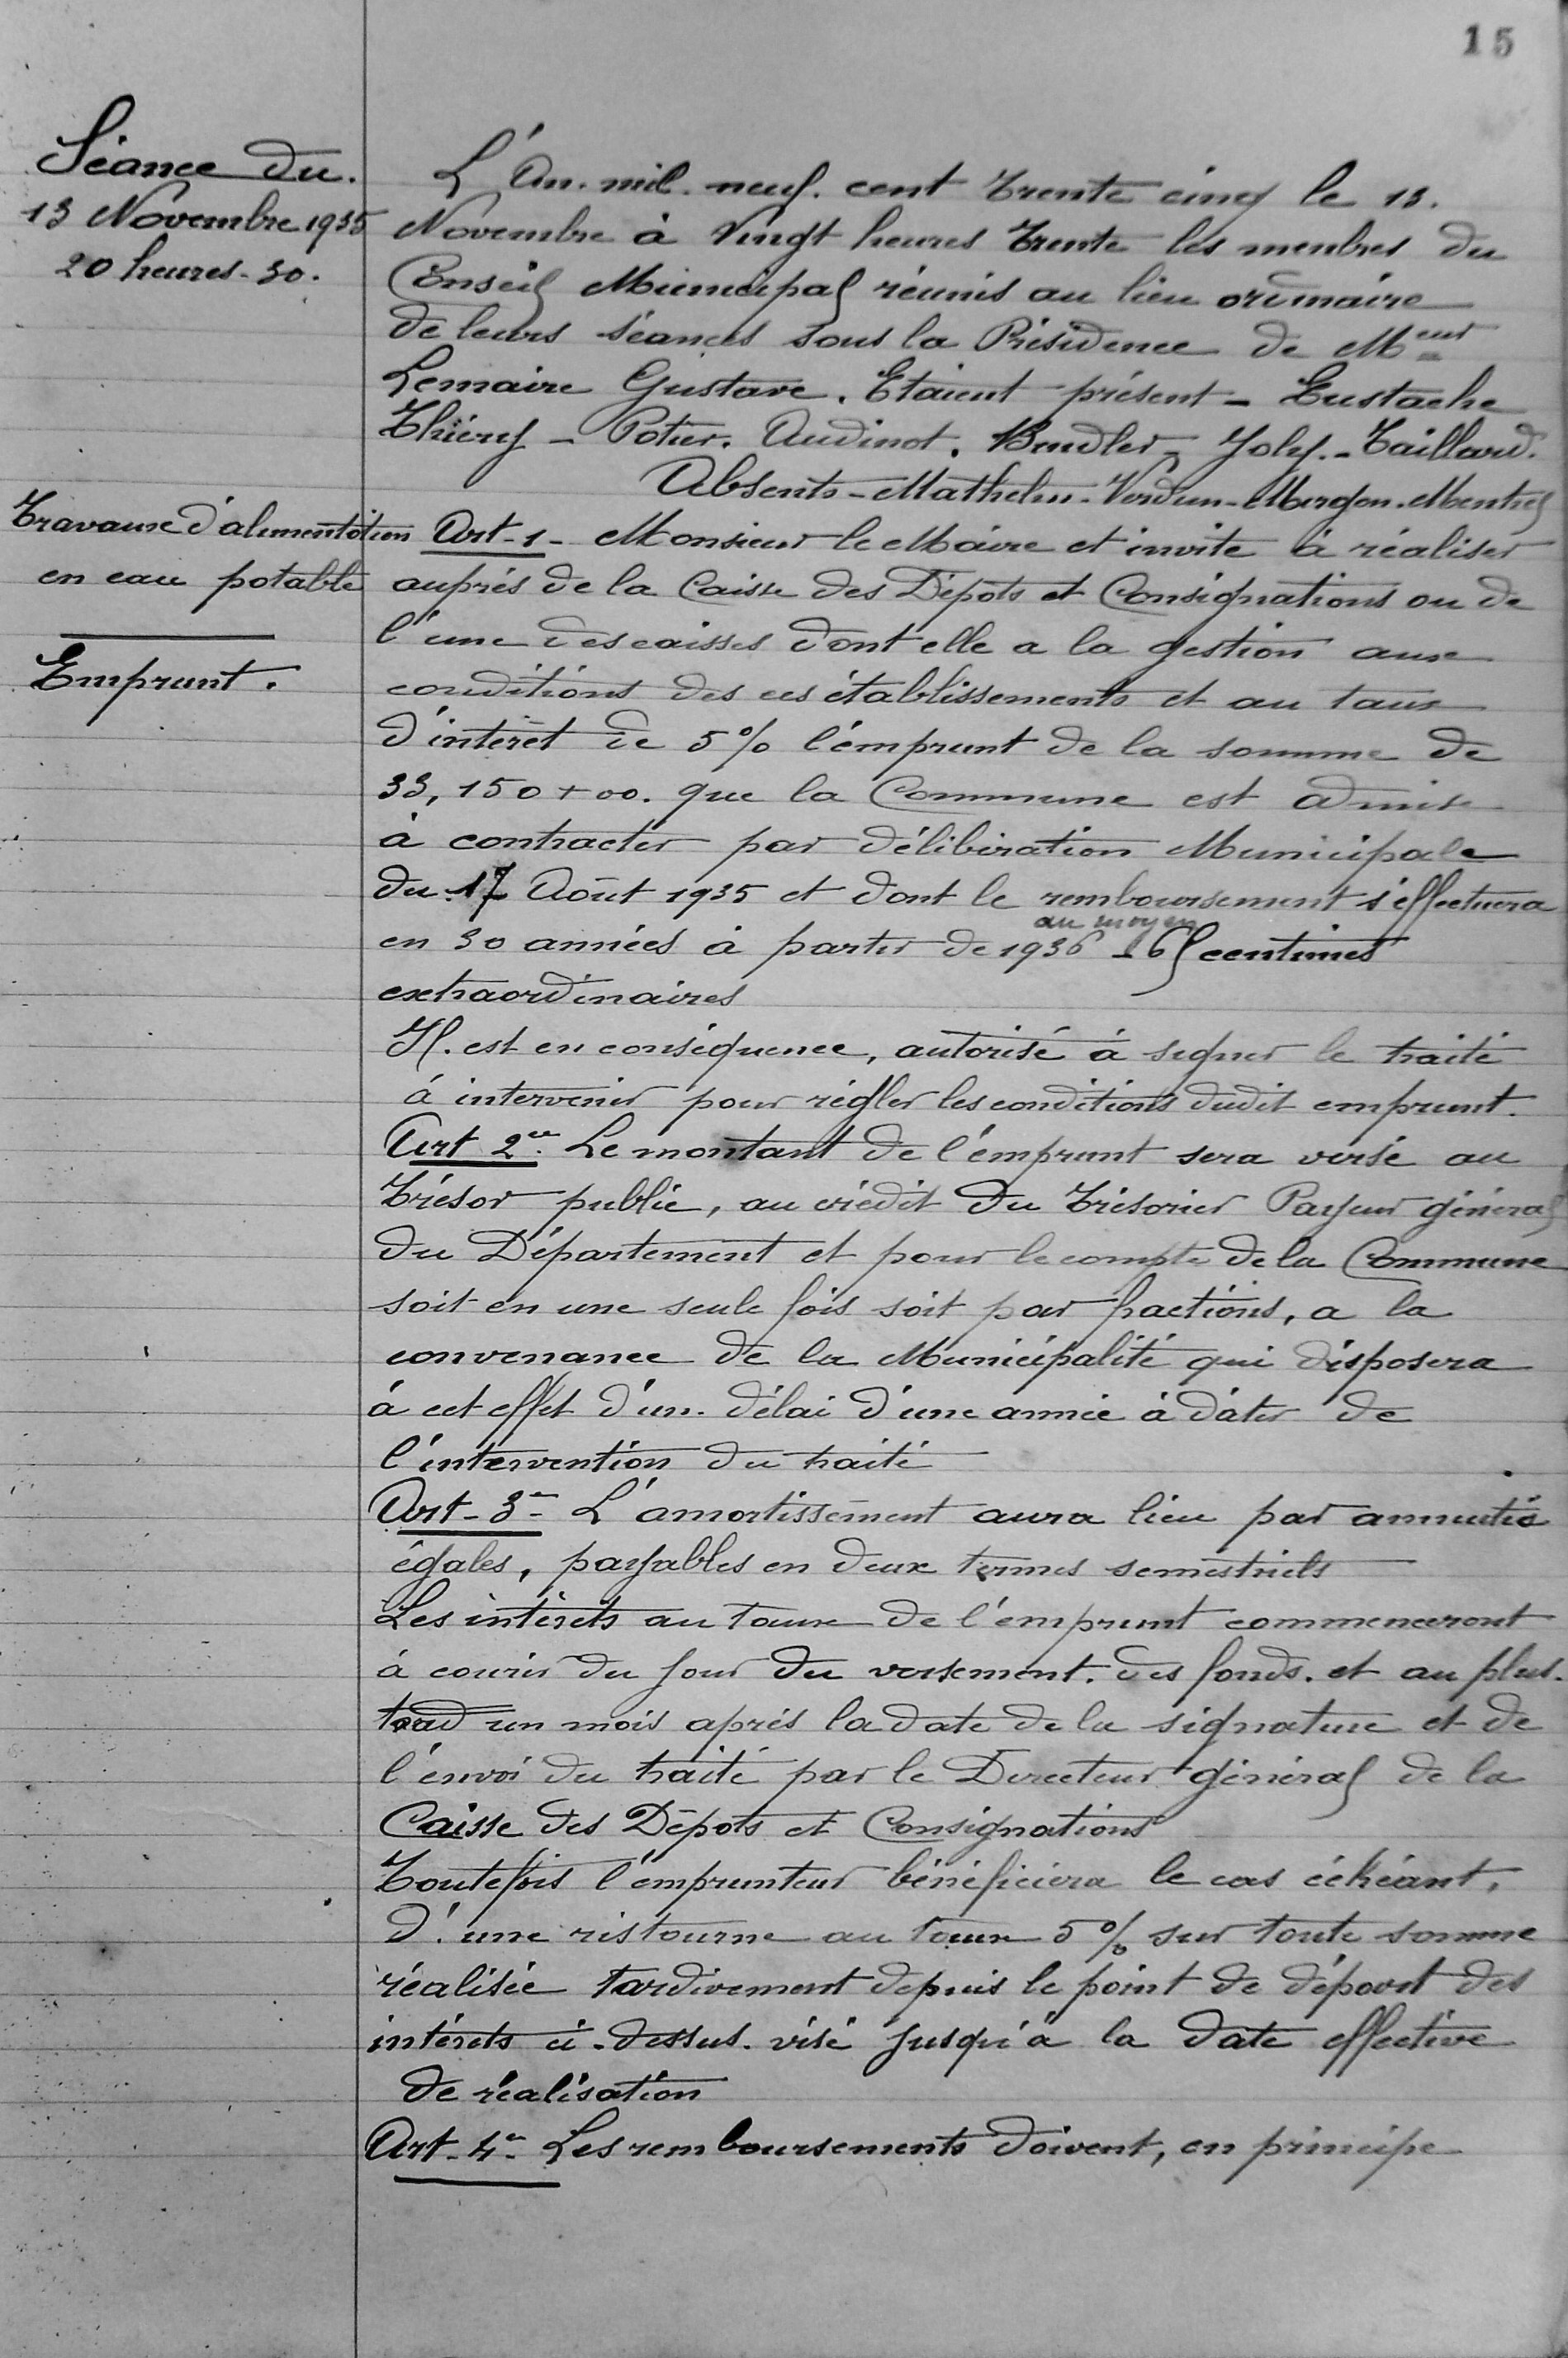 15
Séance du.
13 Novembre 1935
20 heures-30.
L'An. mil. neuf. cent trente cinq le 13.
Novembre à Vingt heures trente les menbres du
Conseil Municipal réunis au lieu ordinaire
de leurs séances sous la Présidence de Meur
Lemaire Gustave. Etaient présent - Eustache
Thiéry - Potier. Audinot. Bindler - Joly. - Taillard.
Absents - Mathelin - Verdun - Mergen. Mentrel
Travaux d'alimentation
en eau potable
Emprunt.
Art-1- Monsieur le Maire et invité à réaliser
auprès de la Caisse des Dépôts et Consignations ou de
l'une des caisses dont elle a la gestion aux
conditions des ces établissements et au taux
d'intérêt de 5% l'emprunt de la somme de
33,150+00. que la Commune est admise
à contracter par délibération Municipale
du 17 Août 1935 et dont le remboursement s'éffectuera
au moyen
en 30 années à partir de 1936 - centimes
extraordinaires
Il. est en conséquence, autorisé à signer le traité
à intervenir pour régler les conditions dudit emprunt.
Art 2e. Le montant de l'emprunt sera versé au
Trésor public, au crédit du Trésorier Payeur général
du Département et pour le compte de la Commune
soit en une seule fois soit par fractions, a la
convenance de la Municipalité qui disposera
à cet effet d'un. délai d'une année à dater de
l'intervention du traité
Art-3- L'amortissement aura lieu par annuités
égales, payables en deux termes semestriels
Les intérêts au taux de l'emprunt commenceront
à courir du jour du versement. des fonds. et au plus.
tard un mois après la date de la signature et de
l'envoi du traité par le Directeur général de la
Caisse des Dépots et Consignations
Toutefois l'emprunteur bénéficiera le cas échéant,
d'une ristourne au taux 5% sur toute somme
réalisée tardivement depuis le point de départ des
intérêts ci-dessus. visé jusqu'à la date effective
de réalisation
Art-4- Les remboursements doivent, en principe